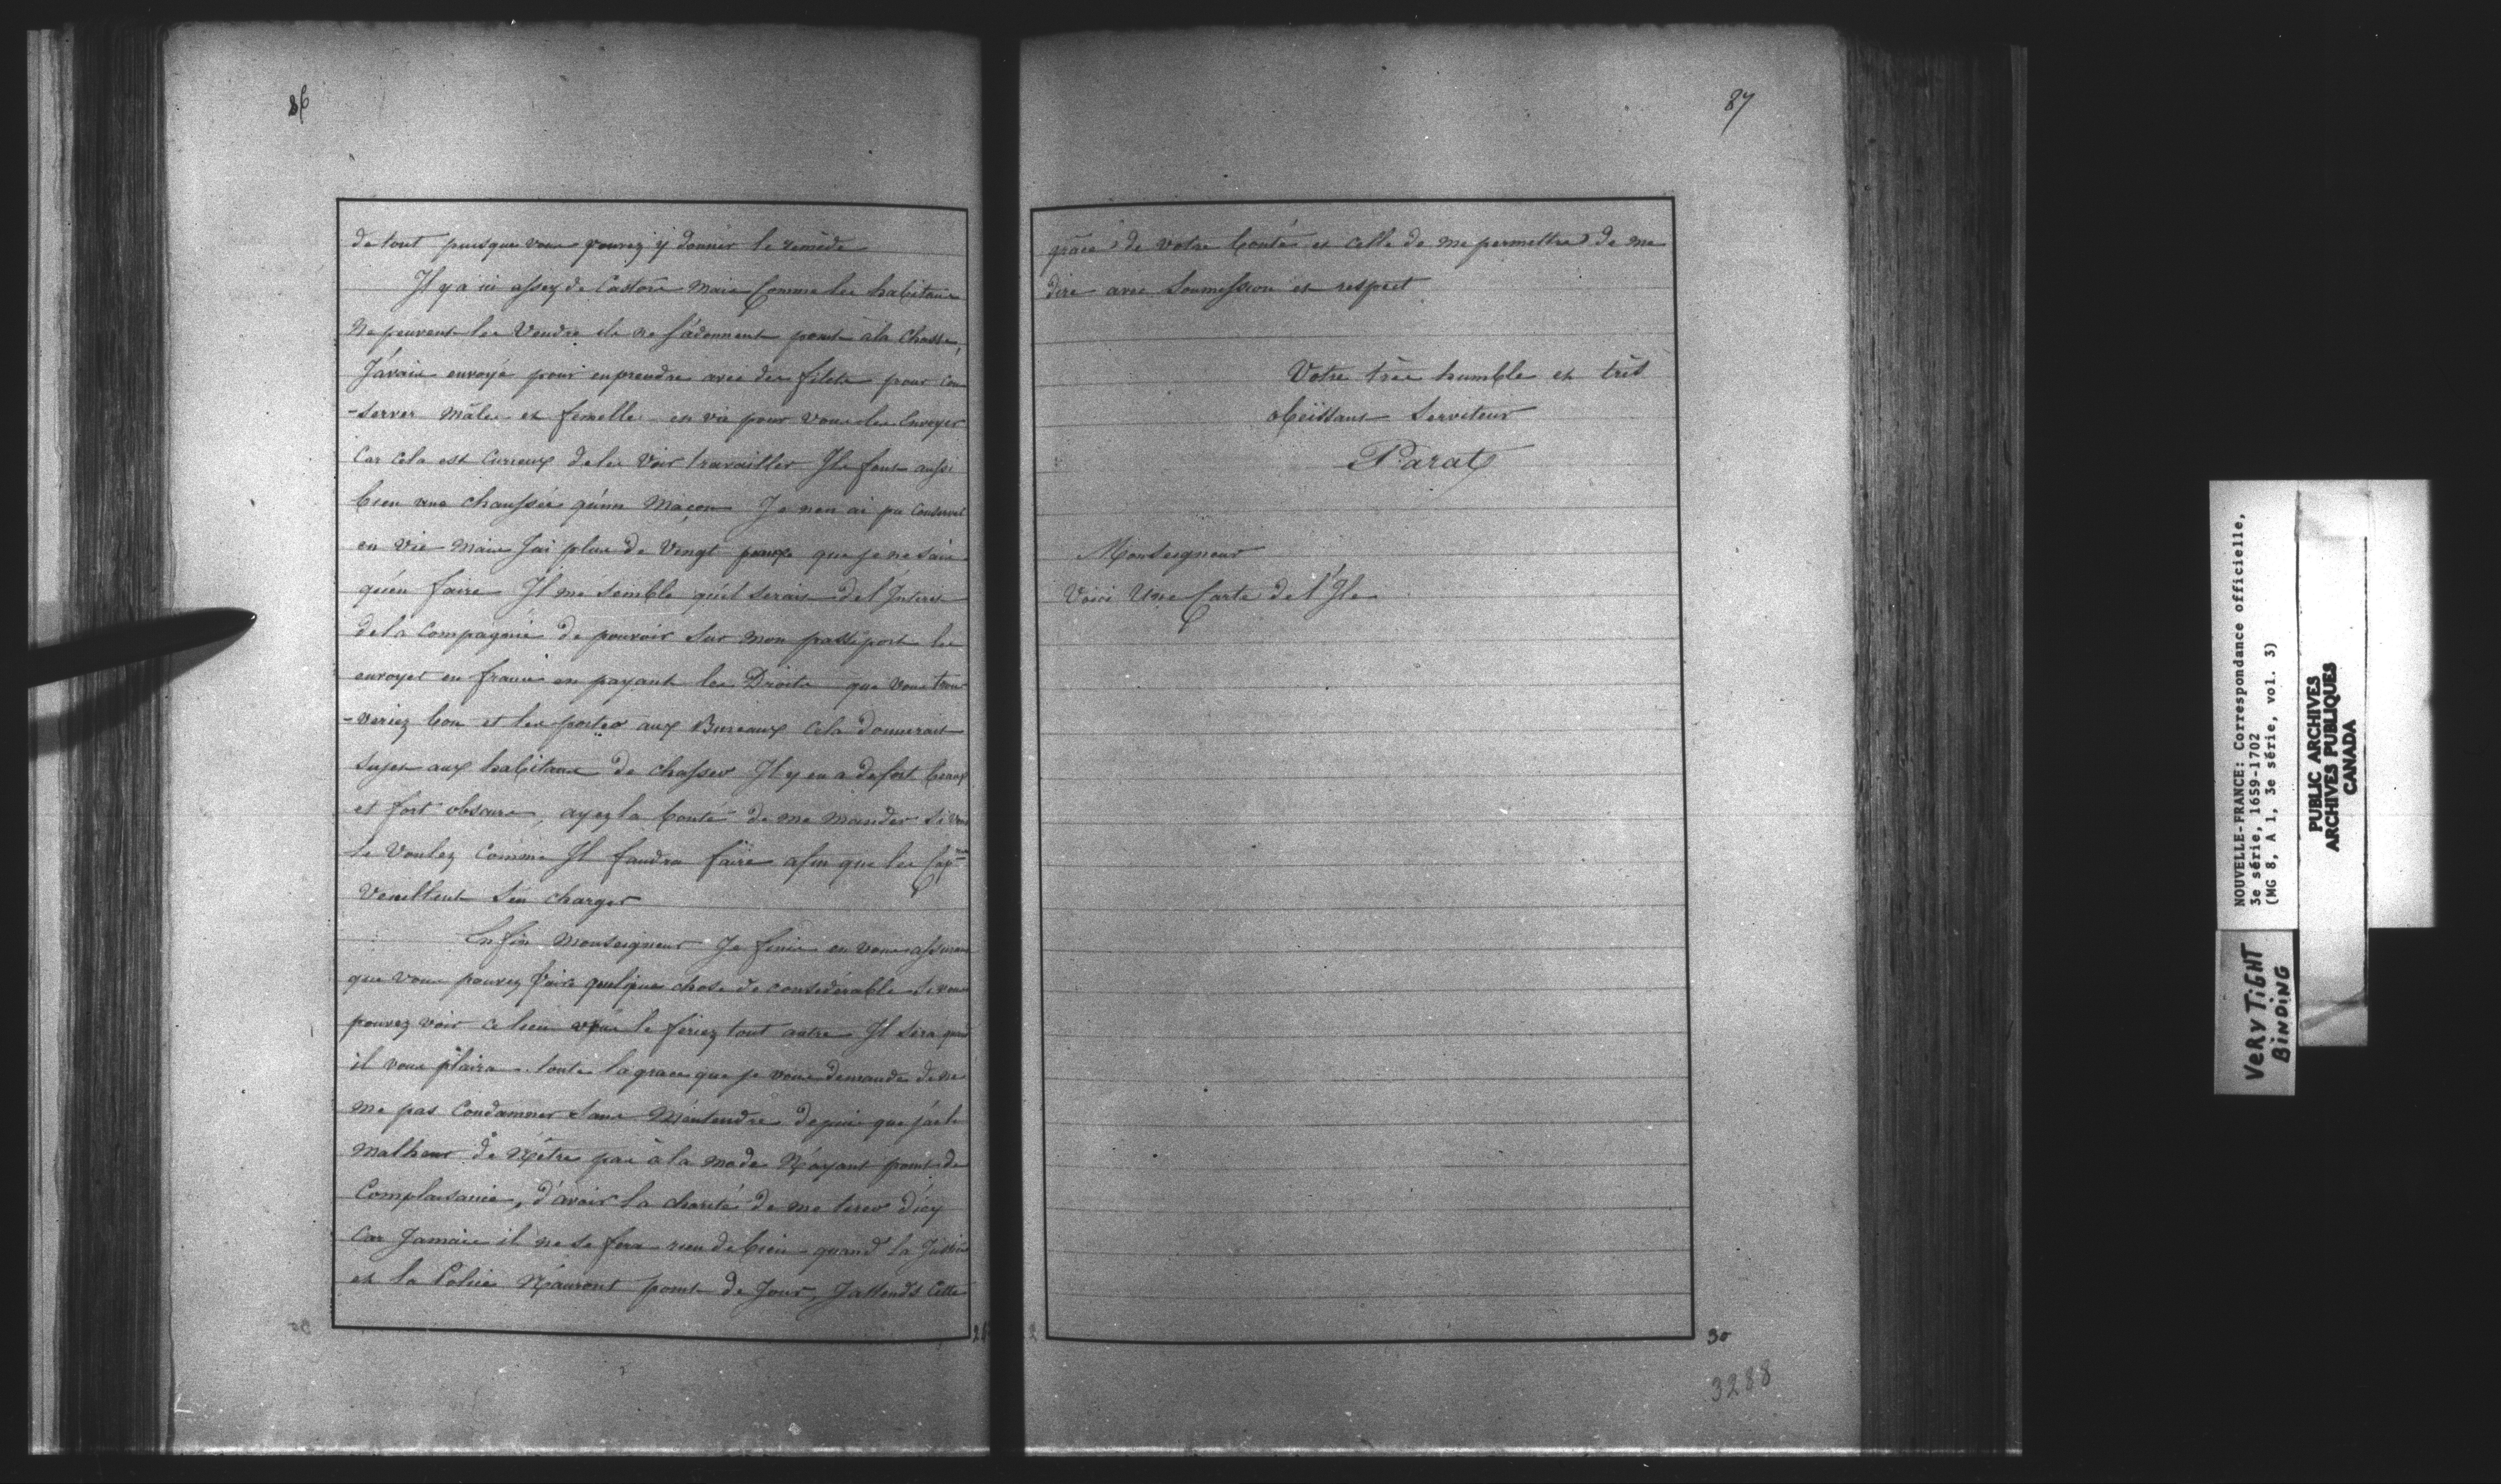 86
de tout puisque vous pouvez y donner le remède
Il y a ici assez de Castors mais Comme les habitans
Ne peuvent les Vendre ils ne s'adonnent point à la Chasse,
J'avais envoyé pour en prendre avec des filets pour con
-server mâle et femelle en vie pour vous les Envoyer
Car cela est Curieux de les Voir travailler Ils font aussi
bien une chaussée qu'un Maçon Je n'en ai pu Conserver
en vie mais J'ai plus de Vingt peaux que je ne sais
qu'en faire Il me semble qu'il serais de l'Interest
de la Compagnie de pouvoir sur mon passeport les
envoyer en france en payant les Droits que vous trou
-veriez bon et les porter aux Bureaux Cela donnerait
sujet aux habitans de chasser Il y en a de fort beaux
et fort obscurs, ayez la bonté de me mander si vous
le Voulez Comme Il faudra faire afin que les Cap.nes
Veuillent s'en charger
Enfin Monseigneur Je finis en vous assurant
que vous pouvez faire quelque chose de considérable si vous
pouvez voir ce lieu vous le feriez tout autre Il sera quand
il vous plaira toute la grace que je vous demande de ne
me pas Condamner sans M'entendre depuis que j'ai le
Malheur de N'être pas à la mode N'ayant point de
Complaisance, d'avoir la charité de me tirer d'icy
Car Jamais il ne se fera rien de bien quand la Justice
et la Police N'auront point de Jour, J'attends Cette
87
grace de votre bonté et celle de me permettre de me
dire avec Soumission et respect
Votre très humble et très
obéissant Serviteur
Parat
Monseigneur
Voici Une Carte de l'Ile
30
3288
NOUVELLE-FRANCE: Correspondance officielle,
3e série, 1659-1702
(MG 8, A 1, 3e série, vol. 3)
PUBLIC ARCHIVES
ARCHIVES PUBLIQUES
CANADA
VERY TIGHT
BINDING